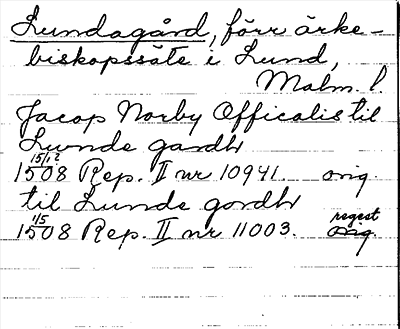 Lundagård, förr ärke-
biskopssäte i Lund,
Malm. l.
Jacop Norby Officalis til
Lunde gardh
15/12
1508 Rep. II nr 10941. orig.
til Lunde gordh
1/5 regest
1508 Rep. II nr 11003. orig.